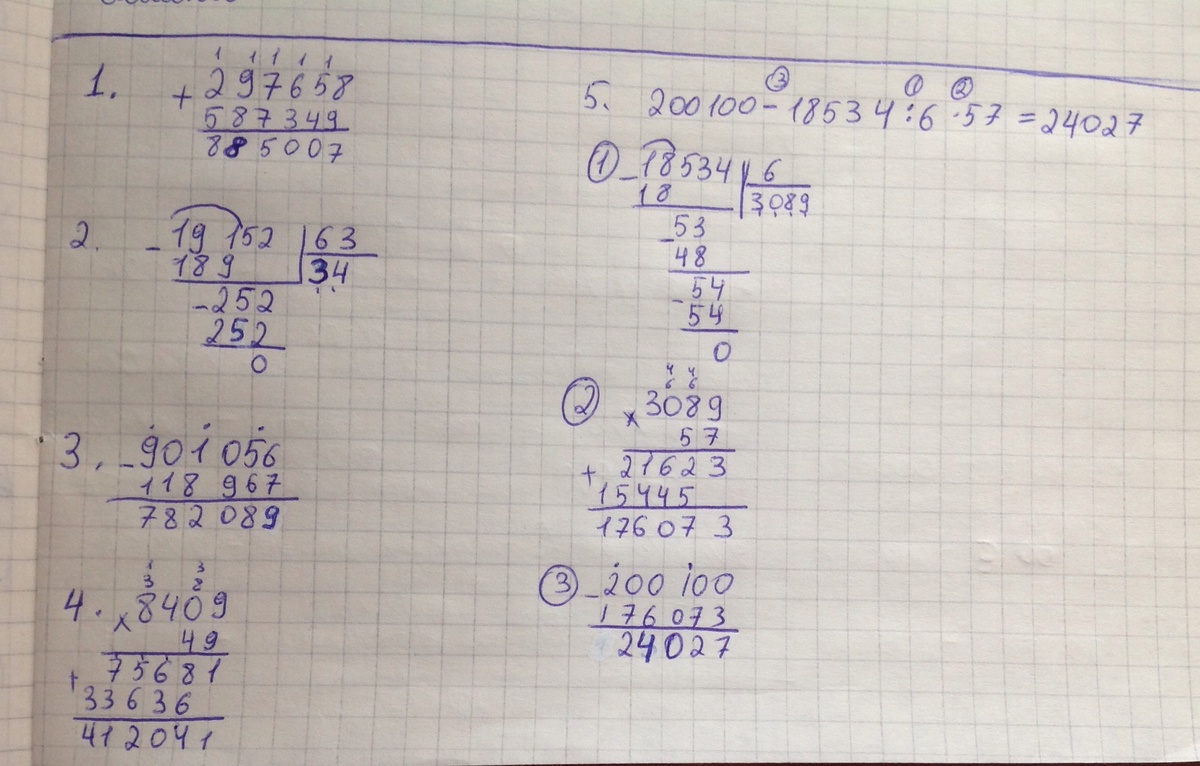 1.
1 1 1 1 1
+ 297658
587349
885007
2.
- 19 152 | 63
189 | 34
- 252
252
0
3. - 901 056
118 967
782 089
1 3
3 8
4. × 8409
49
+ 75681
33636
412041
③ ① ②
5. 200100 - 18534 : 6 · 57 = 24027
① - 18534 | 6
18 | 3089
- 53
48
- 54
54
0
4 4
6 6
② × 3089
57
+ 21623
15445
176073
③ - 200 100
176 073
24027